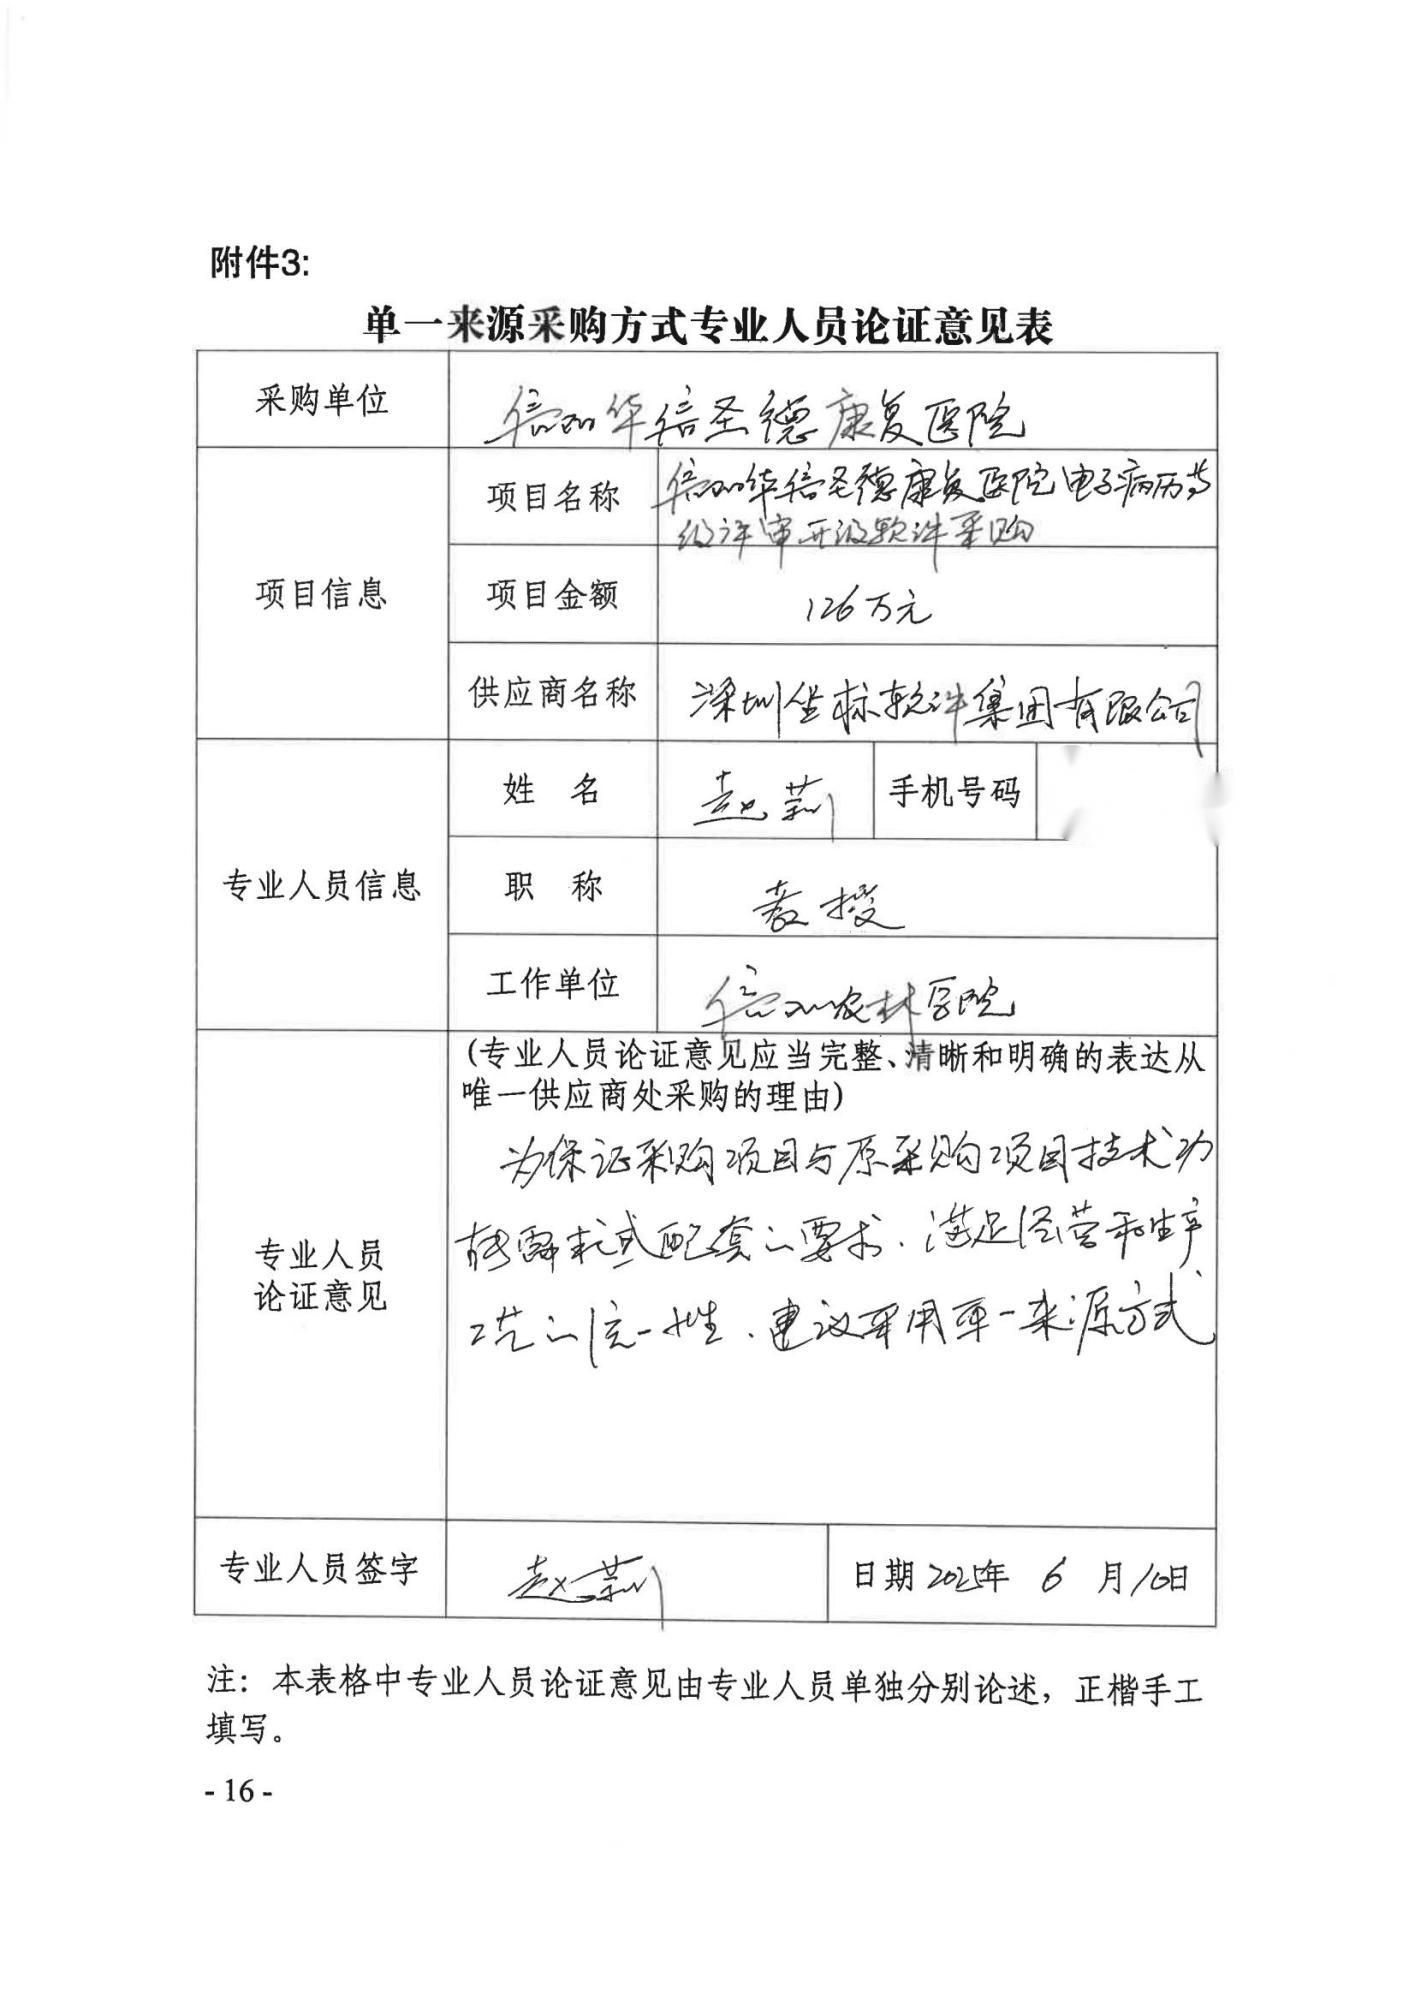 附件3:
单一来源采购方式专业人员论证意见表
采购单位
信阳华信圣德康复医院
项目信息
项目名称
信阳华信圣德康复医院电子病历等
级评审升级软件采购
项目金额
126万元
供应商名称
深圳坐标软件集团有限公司
专业人员信息
姓 名
赵莉
手机号码
职 称
教授
工作单位
信阳农林学院
专业人员
论证意见
(专业人员论证意见应当完整、清晰和明确的表达从
唯一供应商处采购的理由)
为保证采购项目与原采购项目技术功
能 配套的要求、满足经营和生产
工艺的统一性、建议采用单一来源方式
专业人员签字
赵莉
日期 2025年 6 月10日
注：本表格中专业人员论证意见由专业人员单独分别论述，正楷手工
填写。
- 16 -